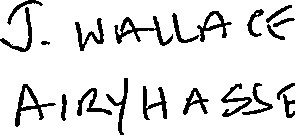 J. WALLACE
AIRYHASSE